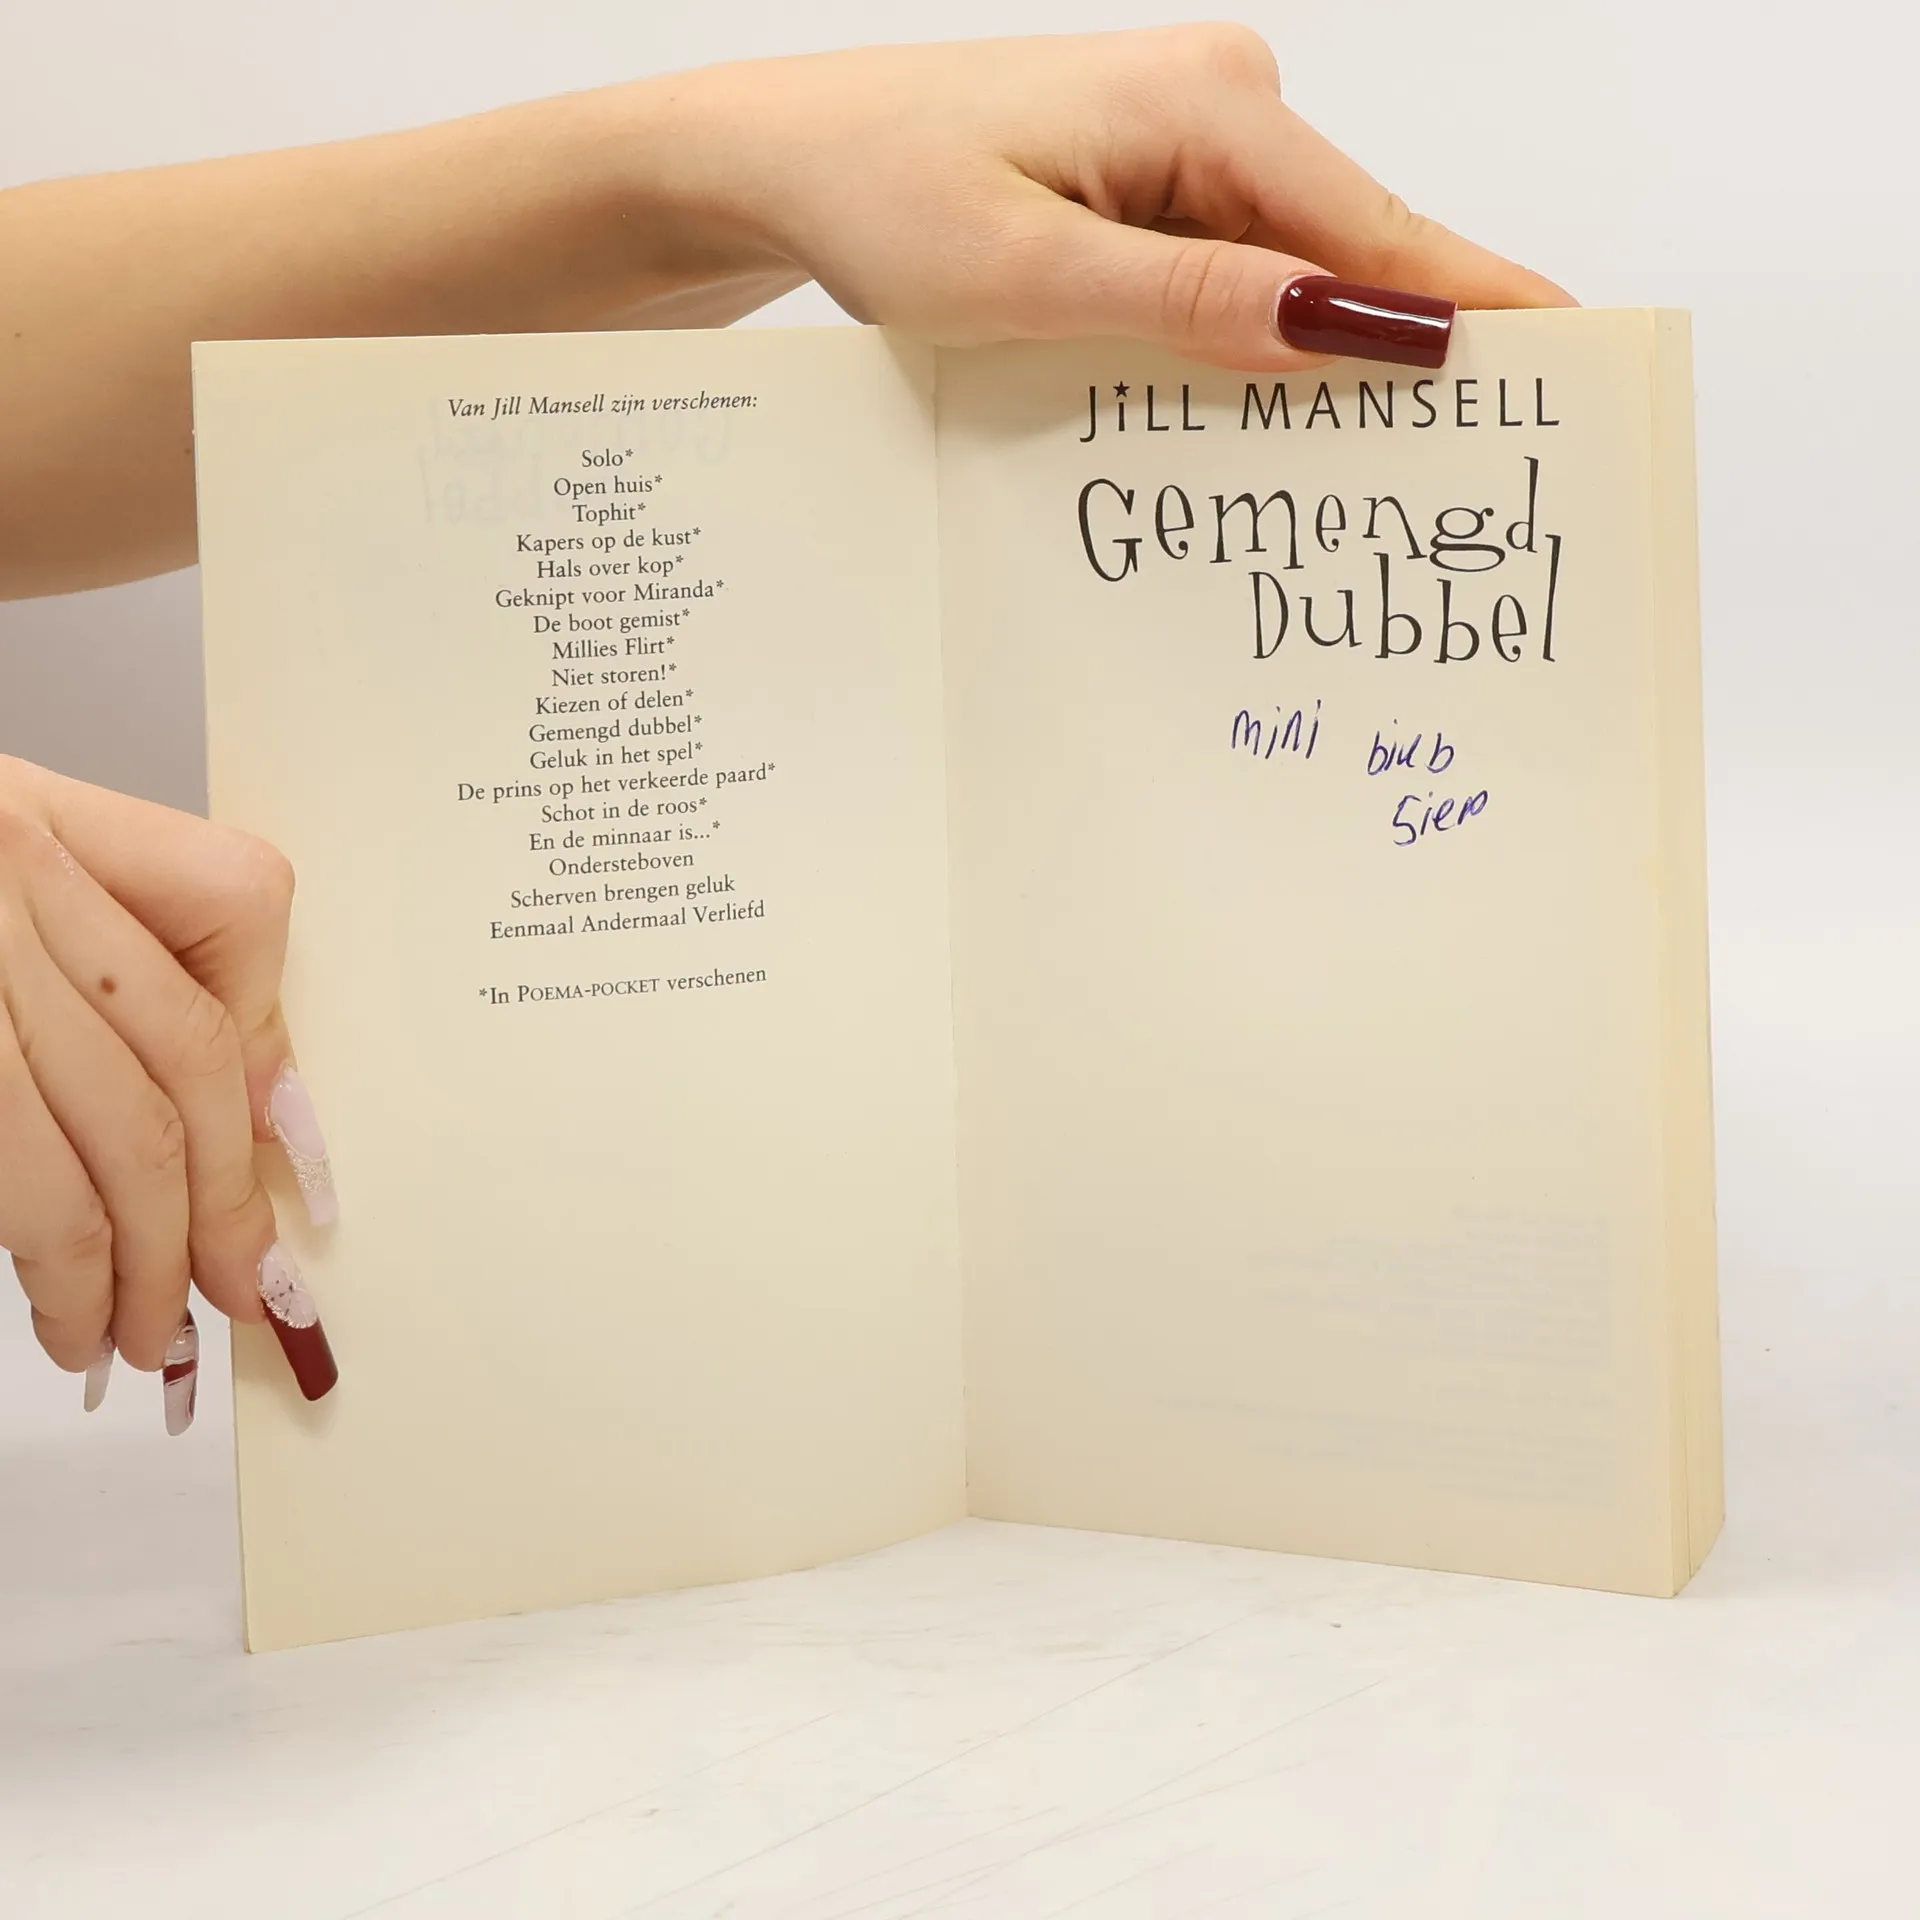 Van Jill Mansell zijn verschenen:
Solo*
Open huis*
Tophit*
Kapers op de kust*
Hals over kop*
Geknipt voor Miranda*
De boot gemist*
Millies Flirt*
Niet storen!*
Kiezen of delen*
Gemengd dubbel*
Geluk in het spel*
De prins op het verkeerde paard*
Schot in de roos*
En de minnaar is...*
Ondersteboven
Scherven brengen geluk
Eenmaal Andermaal Verliefd
*In POEMA-POCKET verschenen
JiLL MANSELL
Gemengd
Dubbel
mini bieb